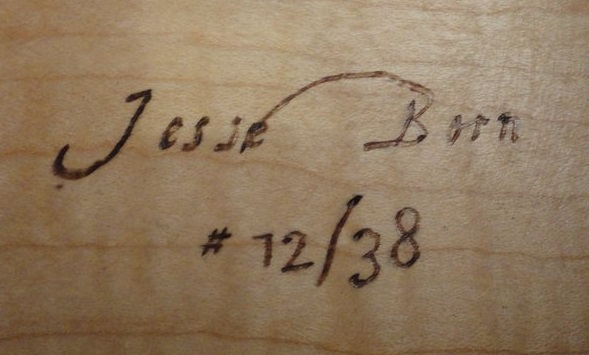 Jesse Born
# 12/38